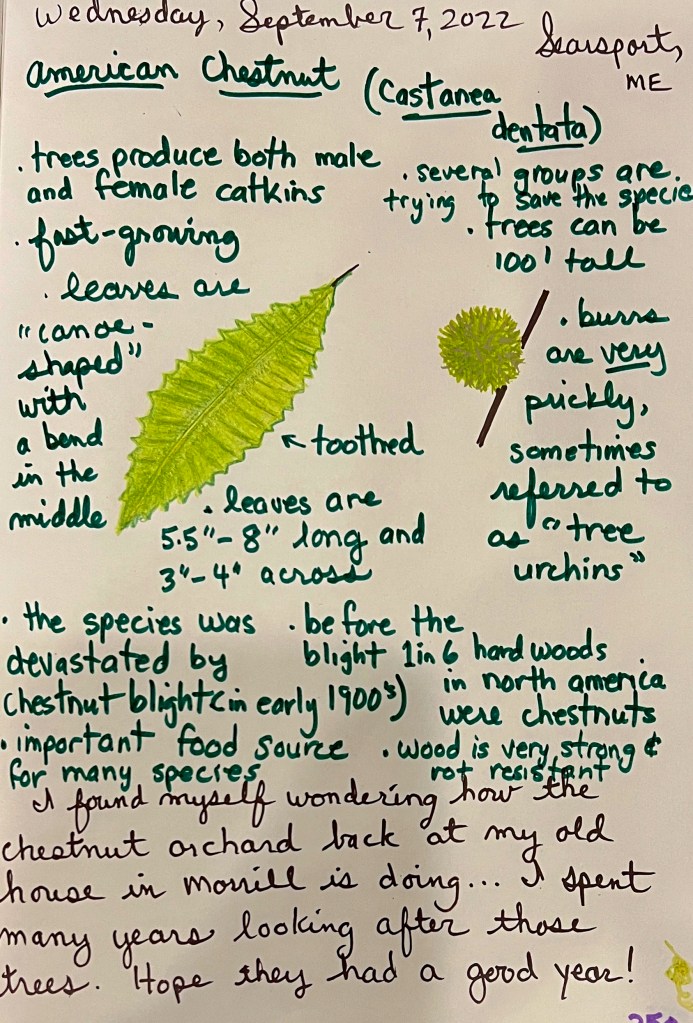 Wednesday, September 7, 2022
Searsport,
ME
American Chestnut (Castanea
dentata)
. trees produce both male
and female catkins
. several groups are
trying to save the specie
. fast-growing
. trees can be
100' tall
. leaves are
"canoe-
shaped"
with
a bend
in the
middle
toothed
. burrs
are very
prickly,
sometimes
referred to
as "tree
urchins"
. leaves are
5.5"- 8" long and
3"-4" across
. the species was
devastated by
chestnut blight (in early 1900's)
. before the
blight 1 in 6 hardwoods
in north america
were chestnuts
. important food source
for many species
. wood is very strong &
rot resistant
I found myself wondering how the
chestnut orchard back at my old
house in Morrill is doing... I spent
many years looking after those
trees. Hope they had a good year!